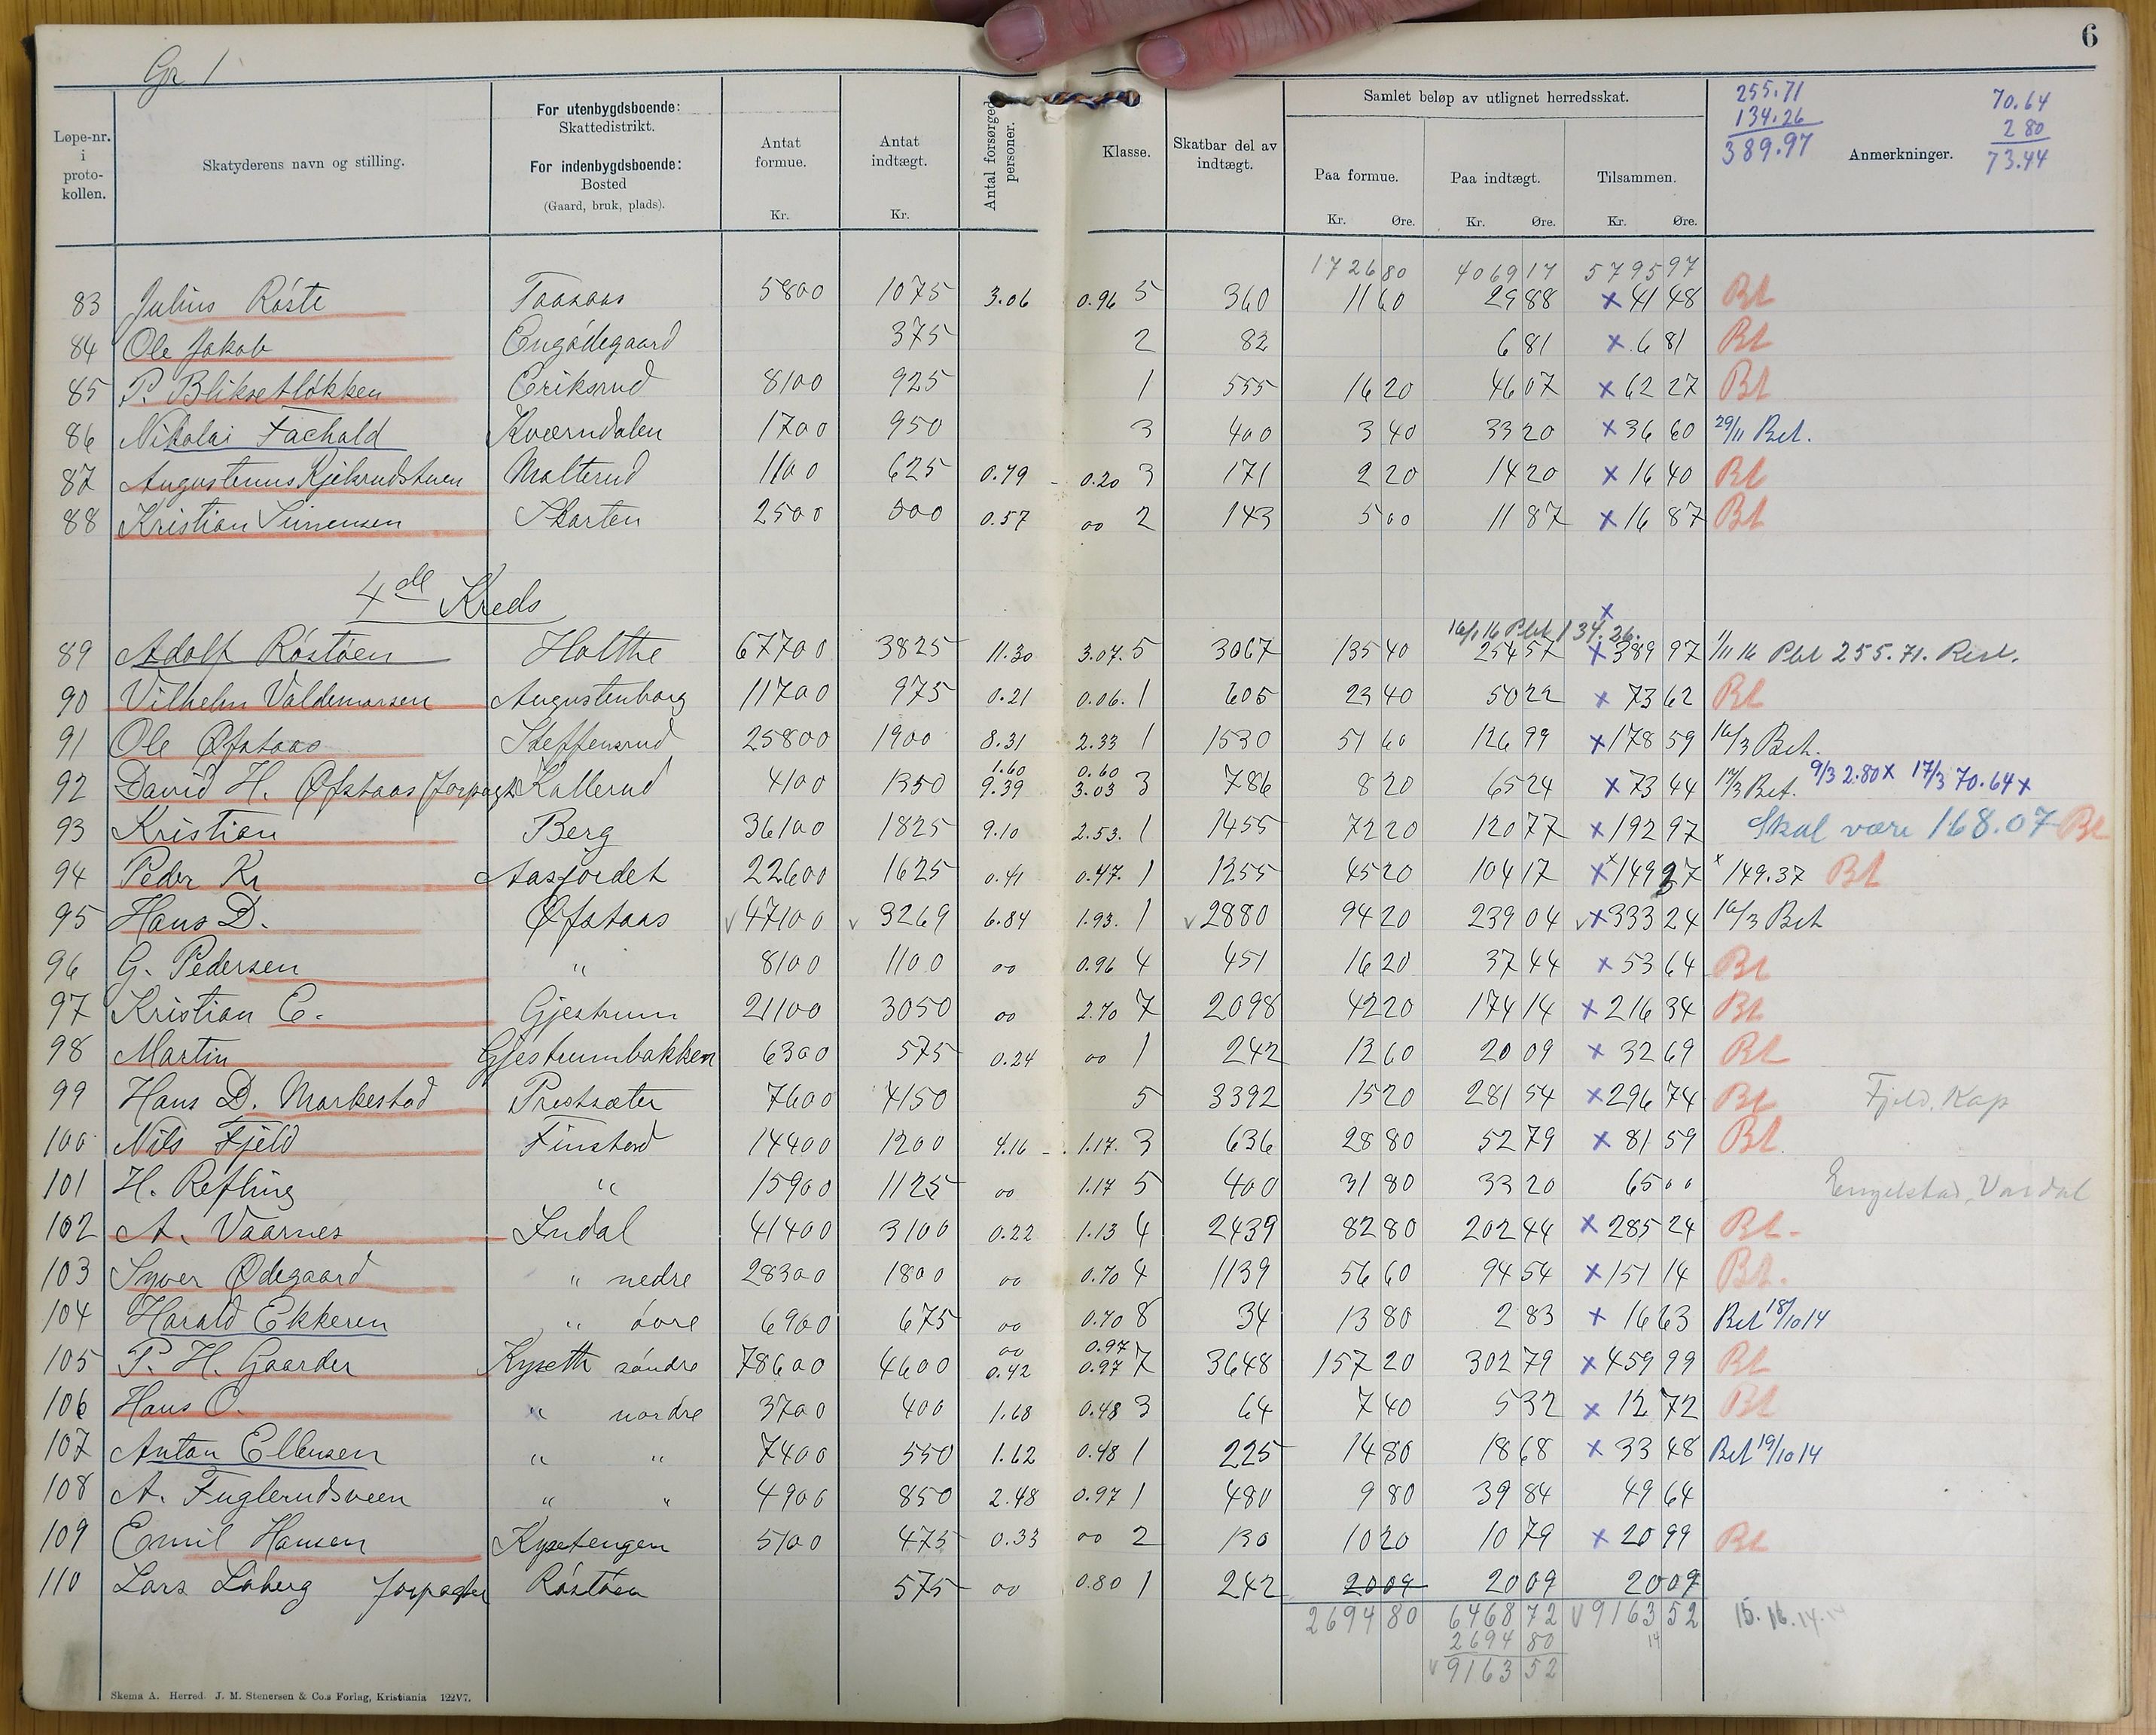 Gr 1
6
Løpe-nr. i proto-kollen.
Skatyderens navn og stilling.
For utenbygdsboende: Skattedistrikt.
For indenbygdsboende: Bosted (Gaard, bruk, plads).
Antat formue. Kr.
Antat indtægt. Kr.
Antal forsørged personer.
Klasse.
Skatbar del av indtægt.
Samlet beløp av utlignet herredsskat.
Paa formue. Kr. Øre.
Paa indtægt. Kr. Øre.
Tilsammen. Kr. Øre.
Anmerkninger.
255.71
134.26
389.97
70.64
2 80
73.44
1726 80 4069 17 5795 97
83 Julius Röste Taasaas 5800 1075 3.06 0.96 5 360 11 60 29 88 x 41 48 Bt
84 Ole Jakob Engödegaard 375 2 82 6 81 x 6 81 Bt
85 P. Bliksetløkken Eriksrud 8100 925 1 555 16 20 46 07 x 62 27 Bt
86 Nikolai Fachald Kværndalen 1700 950 3 400 3 40 33 20 x 36 60 29/11 Bet.
87 Augustinus Kjelsrudstuen Malterud 1100 625 0.79 - 0.20 3 171 2 20 14 20 x 16 40 Bt
88 Kristian Simensen Skarten 2500 500 0.57 oo 2 143 5 00 11 87 x 16 87 Bt
4de Kreds
x
16/1 16 Pbt 134.26.
89 Adolf Röstöen Holthe 67700 3825 11.30 3.07. 5 3067 135 40 254 57 x 389 97 1/11 16 Pbt 255.71. Rest.
90 Vilhelm Valdemarsen Augustenborg 11700 975 0.21 0.06. 1 605 23 40 50 22 x 73 62 Bt
91 Ole Øfstaas Steffensrud 25800 1900 8.31 2.33 1 1530 51 60 126 99 x 178 59 16/3 Bet.
1.60 0.60
92 David H. Øfstaas forpagt. Kallerud 4100 1350 9.39 3.03 3 786 8 20 65 24 x 73 44 17/3 Bet. 9/3 2.80 x 17/3 70.64 x
93 Kristian Berg 36100 1825 9.10 2.53. 1 1455 72 20 120 77 x 192 97 Skal være 168.07 Bt
94 Peder Kr Aasjordet 22600 1625 0.41 0.47. 1 1255 45 20 104 17 x 149 37 x 149.37 Bt
95 Hans D. Øfstaas v 47100 v 3269 6.84 1.93. 1 v 2880 94 20 239 04 v x 333 24 16/3 Bet
96 G. Pedersen " 8100 1100 oo 0.96 4 451 16 20 37 44 x 53 64 Bt
97 Kristian E. Gjestrum 21100 3050 oo 2.70 7 2098 42 20 174 14 x 216 34 Bt
98 Martin Gjestrumbakken 6300 575 0.24 oo 1 242 12 60 20 09 x 32 69 Bt
99 Hans D. Markestad Prestsæter 7600 4150 5 3392 15 20 281 54 x 296 74 Bt Fjeld, Kap
100 Nils Fjeld Finstad 14400 1200 4.16 - 1.17. 3 636 28 80 52 79 x 81 59 Bt
101 H. Refling " 15900 1125 oo 1.17 5 400 31 80 33 20 65 00 Engelstad, Vardal
102 A. Vaarnes Indal 41400 3100 0.22 1.13 4 2439 82 80 202 44 x 285 24 Bt -
103 Syver Ødegaard " nedre 28300 1800 oo 0.70 4 1139 56 60 94 54 x 151 14 Bt.
104 Harald Ekkeren " övre 6900 675 oo 0.70 8 34 13 80 2 83 x 16 63 Bet 18/10 14
oo 0.97
105 P. H. Gaarder Kyseth söndre 78600 4600 0.42 0.97 7 3648 157 20 302 79 x 459 99 Bt
106 Hans O. " nordre 3700 400 1.68 0.48 3 64 7 40 5 32 x 12 72 Bt
107 Anton Ellensen " " 7400 550 1.62 0.48 1 225 14 80 18 68 x 33 48 Bet 19/10 14
108 A. Fuglerudsveen " " 4900 850 2.48 0.97 1 480 9 80 39 84 49 64
109 Emil Hansen Kysetengen 5100 475 0.33 oo 2 130 10 20 10 79 x 20 99 Bt
110 Lars Löberg forpagter Röstöen 575 oo 0.80 1 242 20 09 20 09 20 09
2694 80 6468 72 v 9163 52 15.16.14.
2694 80 14
v 9163 52
Skema A. Herred. J. M. Stenersen & Co.s Forlag, Kristiania 122V7.